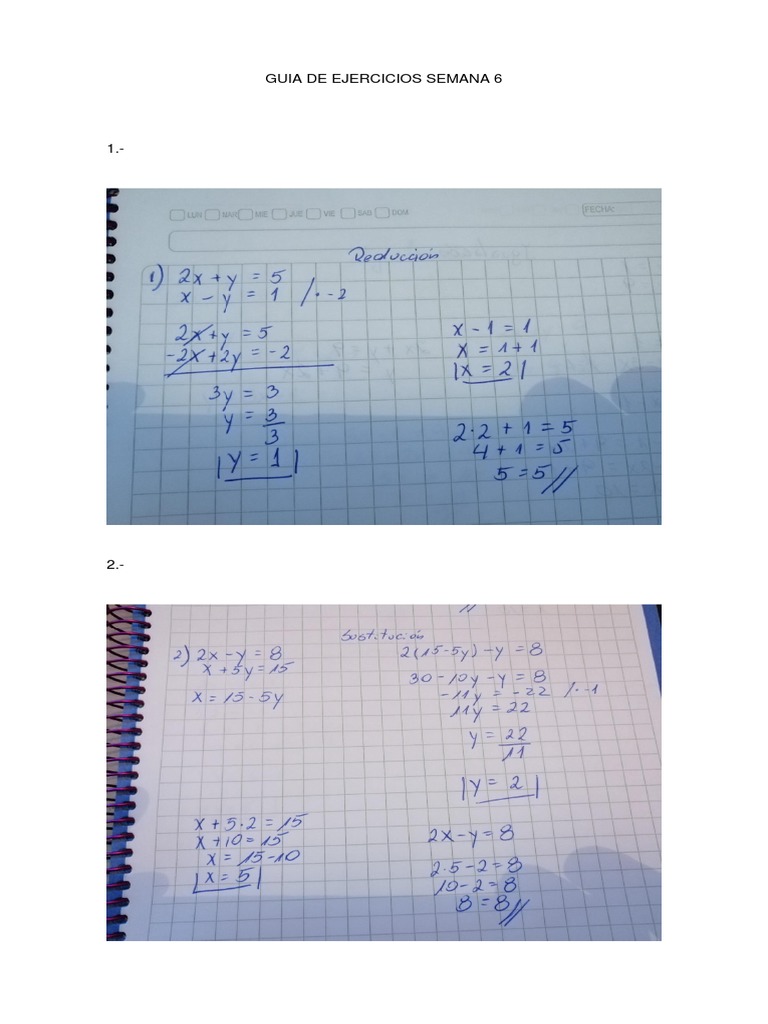 GUIA DE EJERCICIOS SEMANA 6
1.-
LUN MAR MIE JUE VIE SAB DOM FECHA:
Reducción
1) 2x + y = 5
x - y = 1 /· -2
2x + y = 5
-2x + 2y = -2
3y = 3
y = 3/3
y = 1
x - 1 = 1
x = 1 + 1
x = 2
2·2 + 1 = 5
4 + 1 = 5
5 = 5 //
2.-
Sustitución
2) 2x - y = 8
x + 5y = 15
x = 15 - 5y
2(15 - 5y) - y = 8
30 - 10y - y = 8
-11y = -22 /· -1
11y = 22
y = 22/11
y = 2
x + 5·2 = 15
x + 10 = 15
x = 15 - 10
x = 5
2x - y = 8
2·5 - 2 = 8
10 - 2 = 8
8 = 8 //